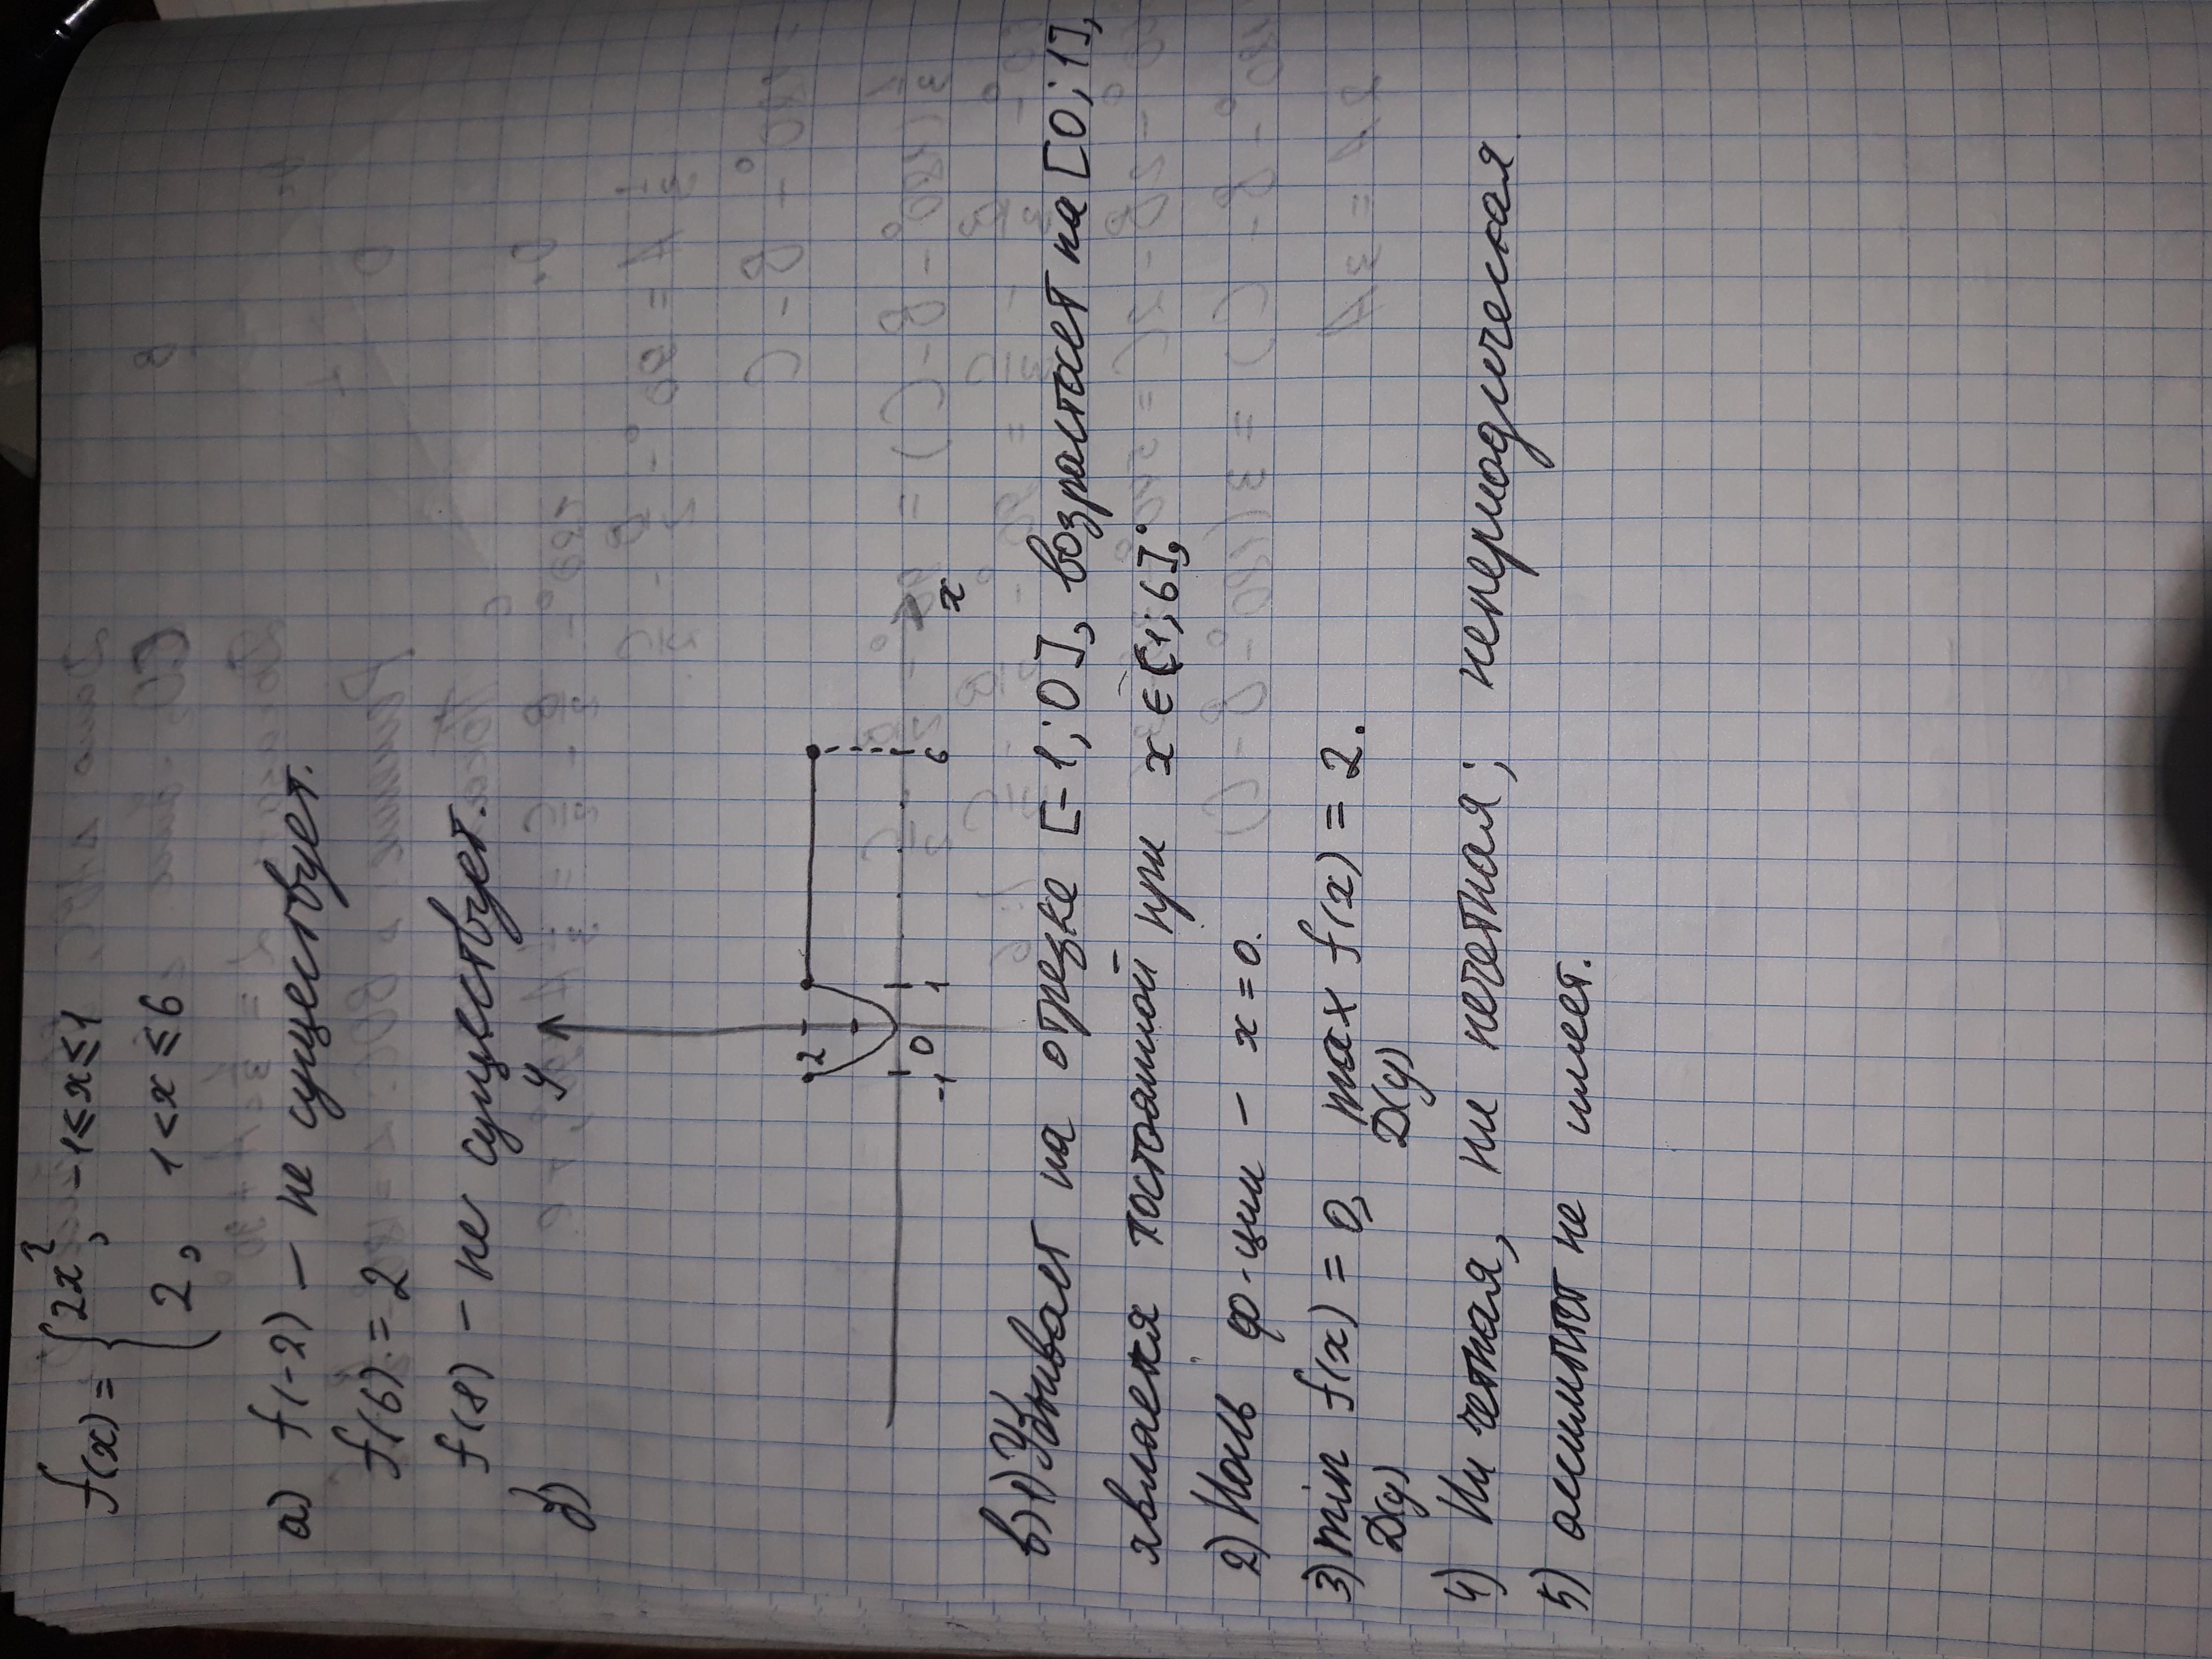 f(x) = { 2x², -1≤x≤1
2, 1<x≤6
а) f(-2) – не существует.
f(6) = 2
f(8) – не существует.
б)
y
2
-1 0 1 6 x
в) 1) Убывает на отрезке [-1; 0], возрастает на [0; 1],
является постоянной при x ∈ (1; 6];
2) Ноль ф-ции – x = 0.
3) min f(x) = 0, max f(x) = 2.
D(y) D(y)
4) Ни четная, ни нечетная; непериодическая
5) асимптот не имеет.